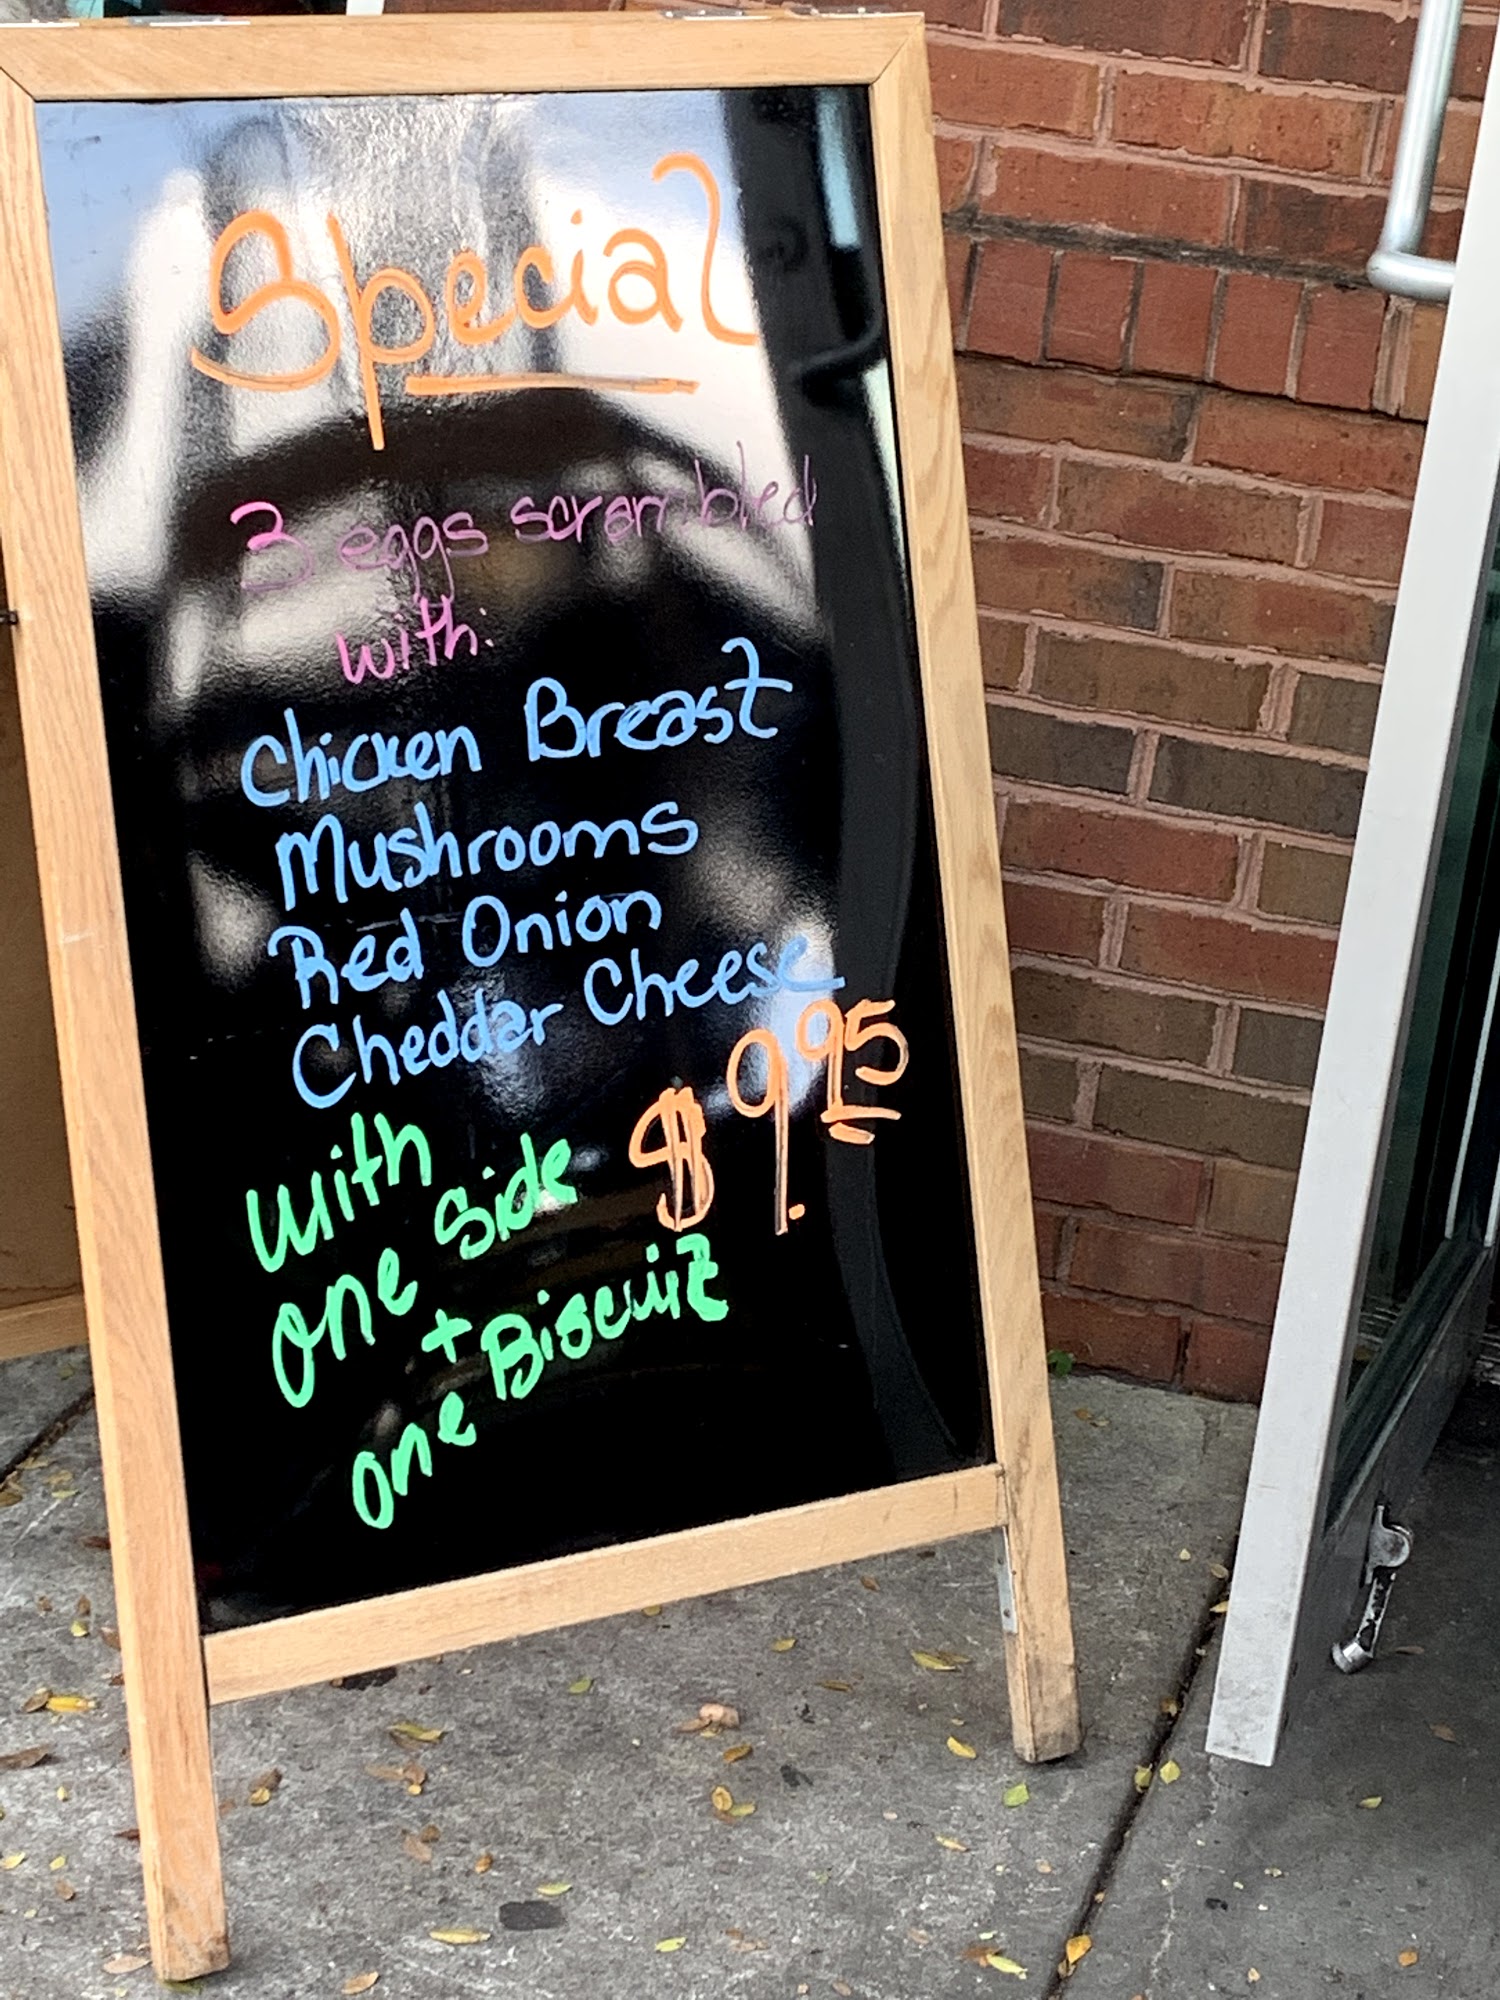 Special
3 eggs scrambled
with:
Chicken Breast
Mushrooms
Red Onion
Cheddar Cheese
$9.95
With
one Side
+
one Biscuit